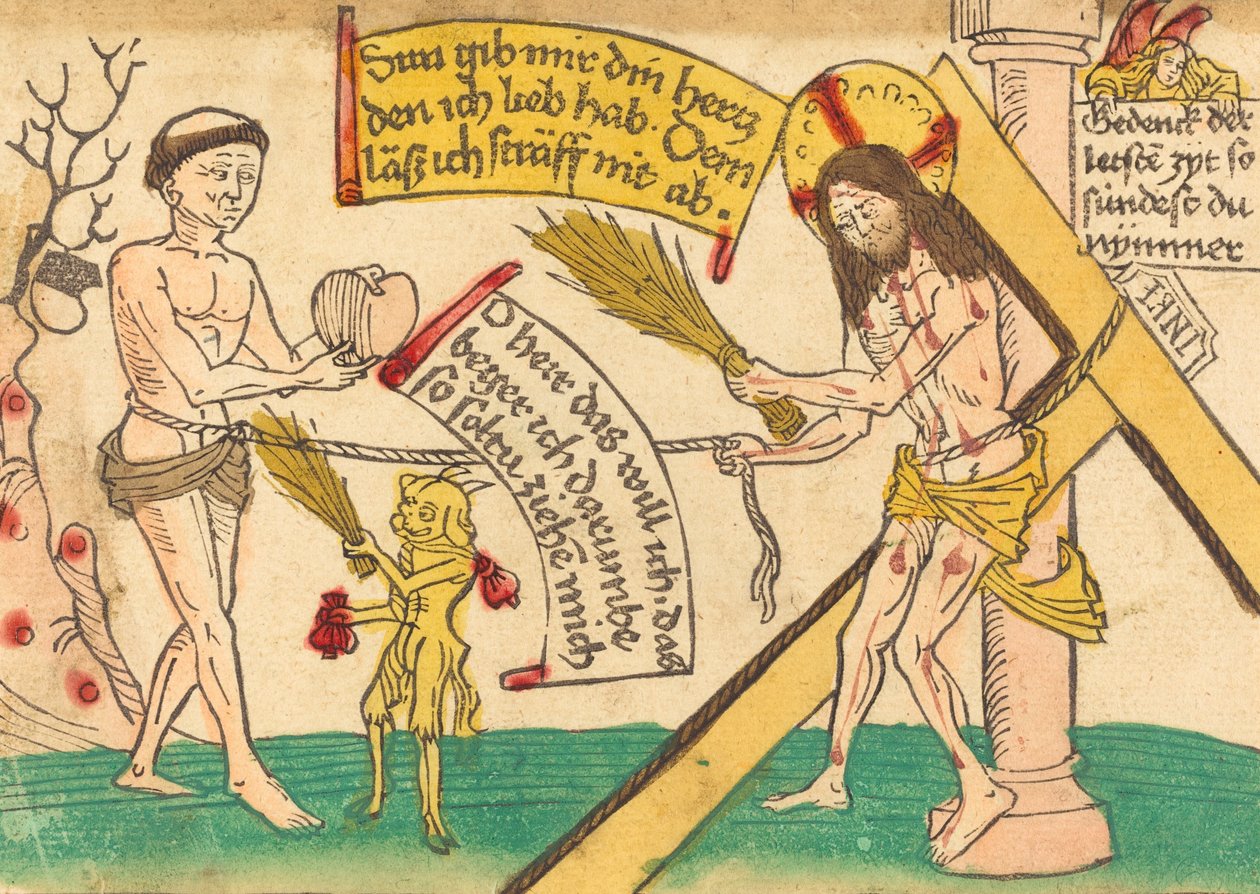 Sun gib mir din hertz
den ich lieb hab. Dem
läß ich sträff nit ab.
O herr das will ich. das
beger ich darumbe
so soltu ziehē mich
Gedenck der
letstē zyt so
sündest du
nÿmmer